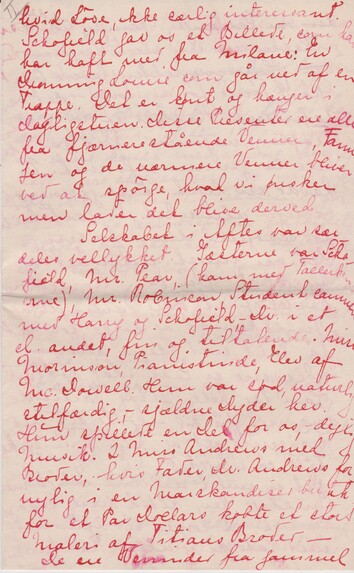 hvid Löve, ikke særlig interessant.
Schofield gav os et Billede, som han
har haft med fra Milano: En
charming donne som går ned af en
trappe. Det er kønt og hænger i
dagligstuen. Disse Presenter ere alle
fra fjærnerestående Venner, Fami
lien og de nærmere Venner bliver
ved at spörge, hvad vi ønsker
men lader det blive derved
Selskabet i Aftes var sær
deles vellykket. Gæsterne var Scho
field, Mr. Pear, (kom med
Mr. Robinson, Student sammen
med Harry og Schofield – Dr. i et
el. andet, fin og tiltalende. Miss
Morinson, Pianistinde, Elev af
Mc. Dowell. Hun var sød, naturlig
stilfærdig, – sjældne dyder her.
Hun spillede en Del for os, – dejlig
musik. 2 Miss Andrews med
Broder, – hvis Fader, Dr. Andrews for
nylig i en Marskandiser butik
for et Par Dollars købte et stort
maleri af Titians Broder –
De ere Veninder fra gammel